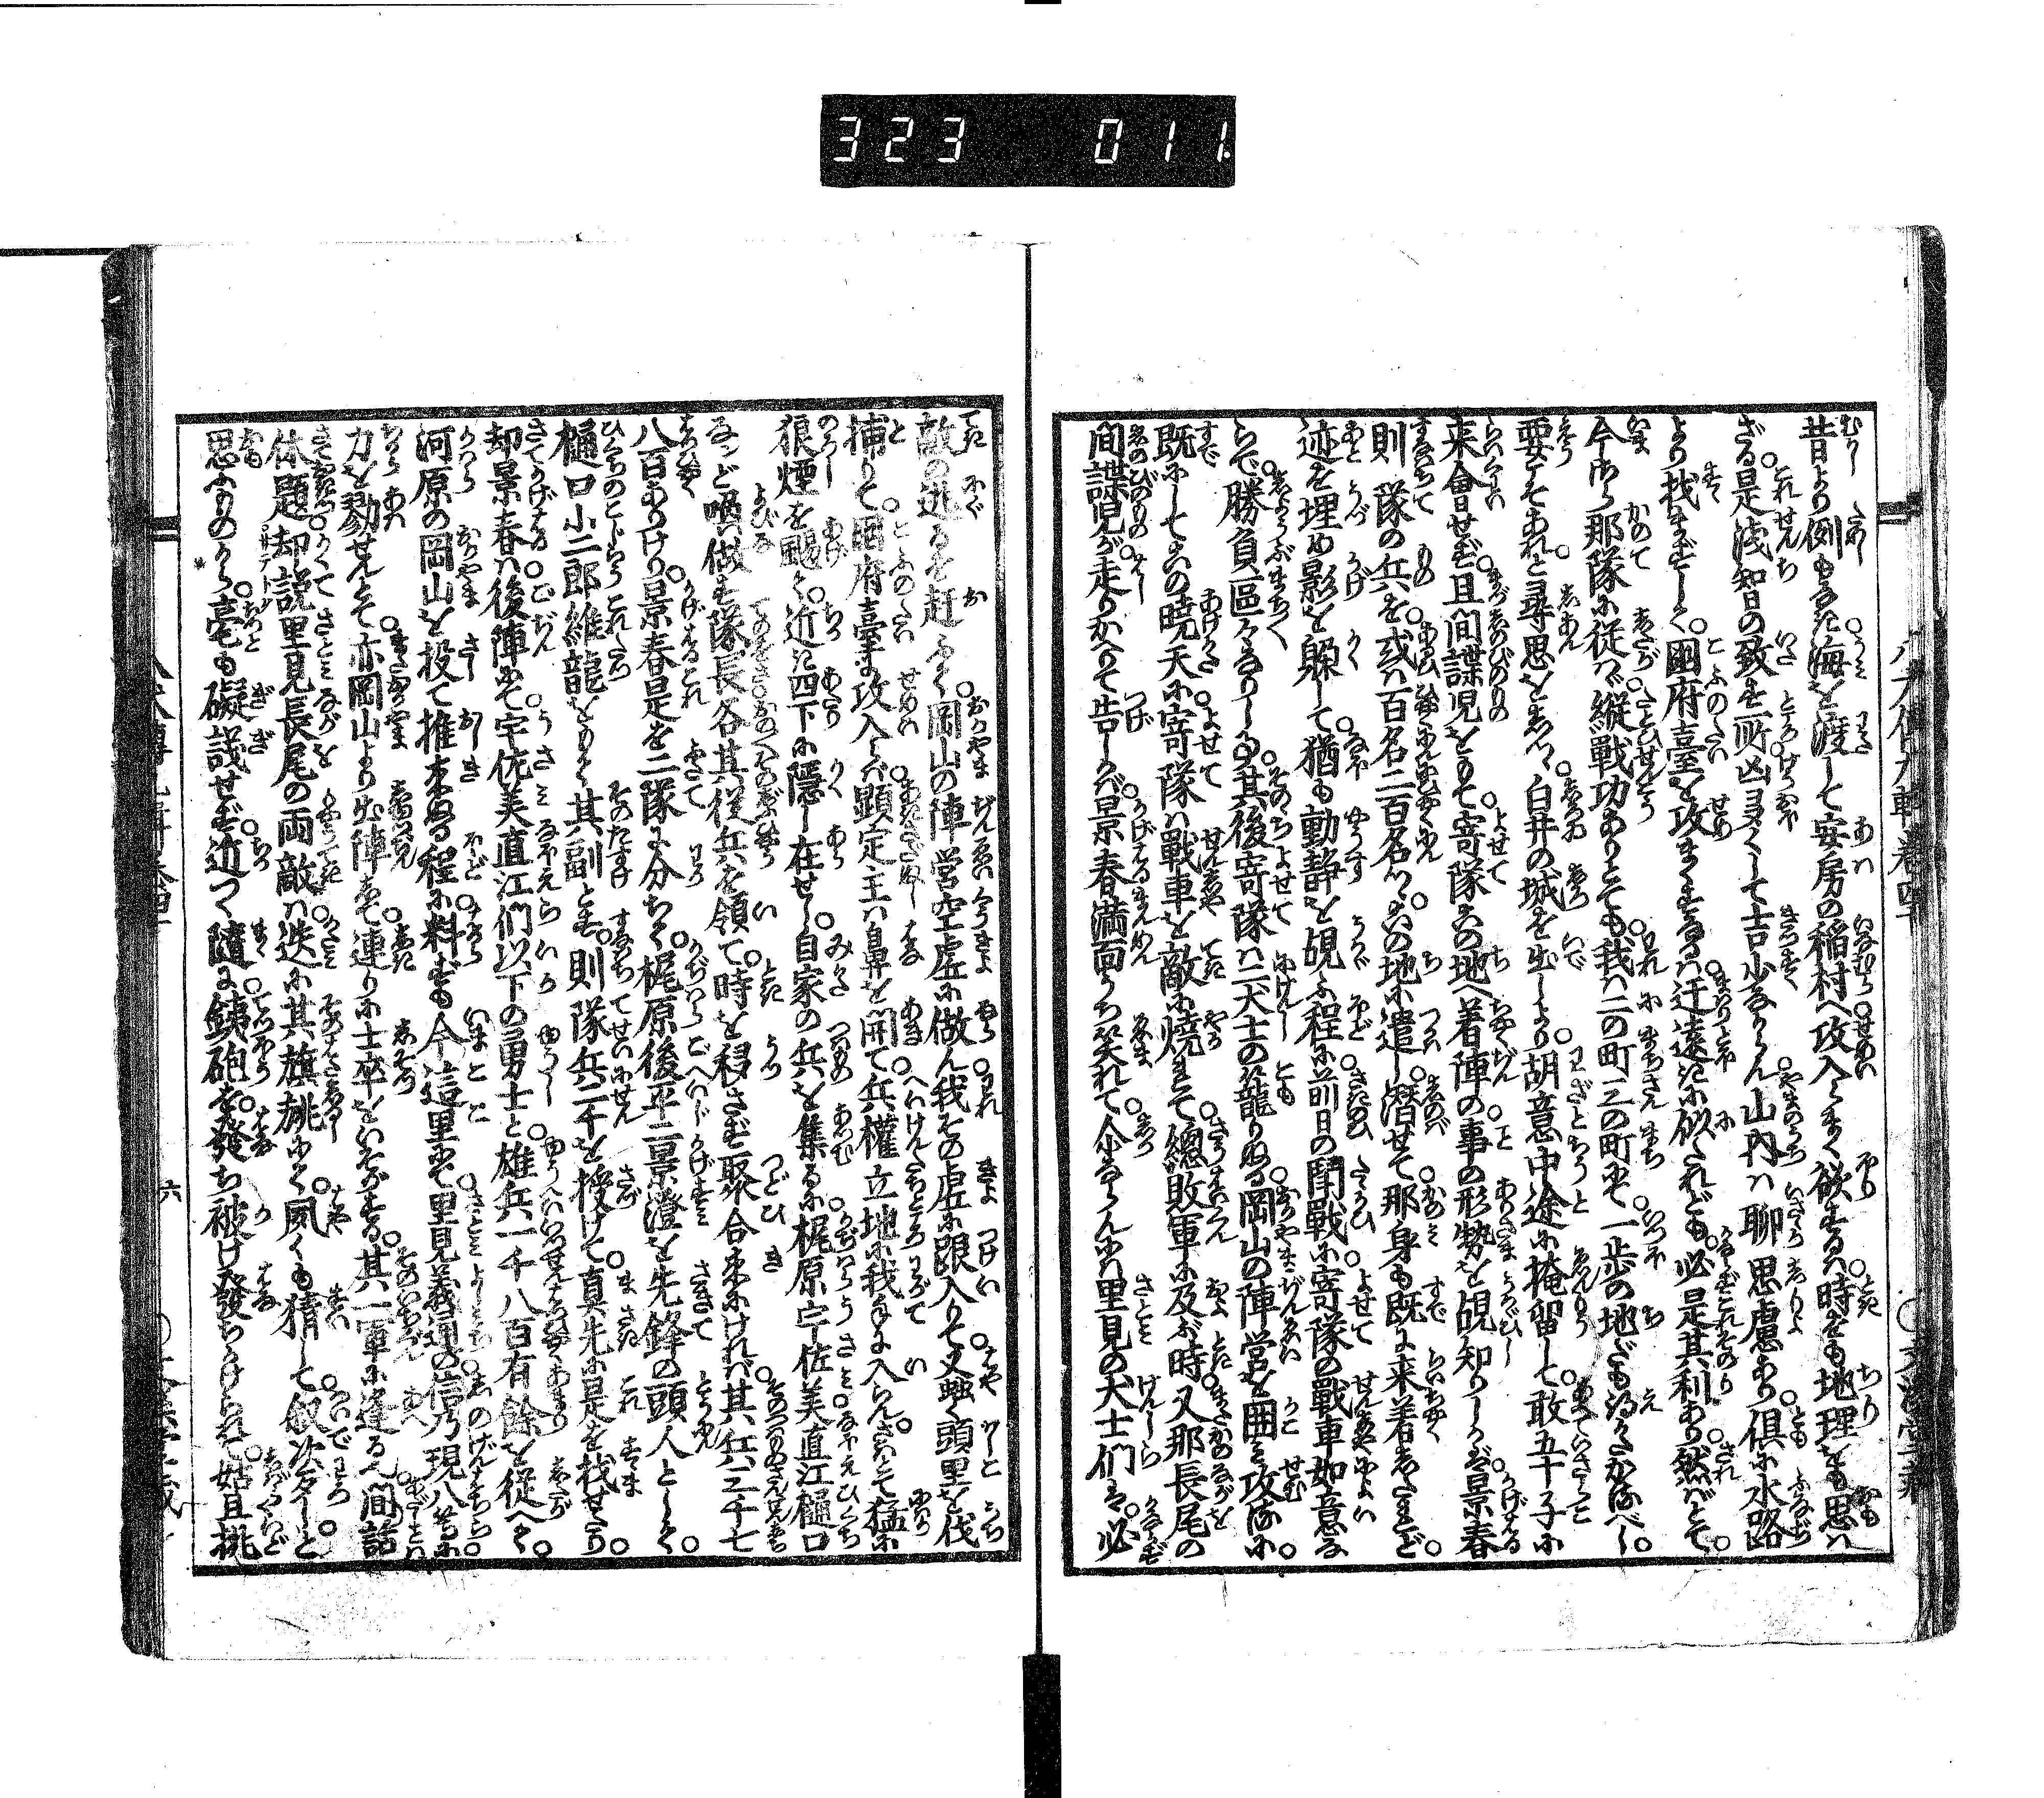 323 011
昔より例もなき海を渡して安房の稲村へ攻入らまく欲するは時をも地理をも思は
ざる是浅智の致す所凶多くして吉少なからん山内は聊思慮あり倶に水路
より找まずして國府臺を攻まくするは迂遠に似たれども必是其利あり然ばとて
今われ那隊に従はゞ縦戦功ありとても我は二の町三の町にて一歩の地だも得がたかるべし
要こそあれと尋思をしつ白井の城を出しより胡意中途に掩留して敢五十子に
来會せず且間諜児をもて寄隊の地へ着陣の事の形勢を覘知りしかば景春
則隊の兵を或は百名二百名つゝの地に遣し潜せて那身も既に来着したれど
迹を埋め影を躱して猶も動静を覘ふ程に前日の閗戰に寄隊の戰車如意な
らで勝負區々なりしに其後寄隊は二犬士の籠りぬる岡山の陣営を囲み攻るに
既にしての暁天に寄隊は戰車を敵に焼れて總敗軍に及ぶ時又那長尾の
間諜児が走りかへりて告しかば景春満面うち笑れて尓ならんには里見の犬士們は必
敵の迯るを赶ふて岡山の陣営空虚に做ん我その虚に跟入りて又蚤く頭里を伐
捕りて國府臺に攻入らば顕定主は鼻を開て兵權立地に我手に入らんさはとて猛に
狼煙を颺て近き四下に隱し在せし自家の兵を集るに梶原宇佐美直江樋口
など喚做す隊長各其従兵を領て時を移さず聚合来にければ其兵三千七
八百ありけり景春是を二隊に分ちて梶原後平二景澄を先鋒の頭人として
樋口小二郎維龍をもて其副とす則隊兵二千を授けて真先に是を找せたり
却景春は後陣にて宇佐美直江們以下の勇士と雄兵一千八百有餘を従へて
河原の岡山を投て推来ぬる程に料ずも今這里にて里見義通の信乃現八等に
力を勠せんとて亦岡山より出陣して連りに士卒をいそがする其一軍に逢る也間話
休題却説里見長尾の両敵は迭に其旗幟にて夙くも猜して叙次多しと
思ふものから毫も礙議せず近つく隨に銕砲を發ち被け發ちかけられて姑且挑
六